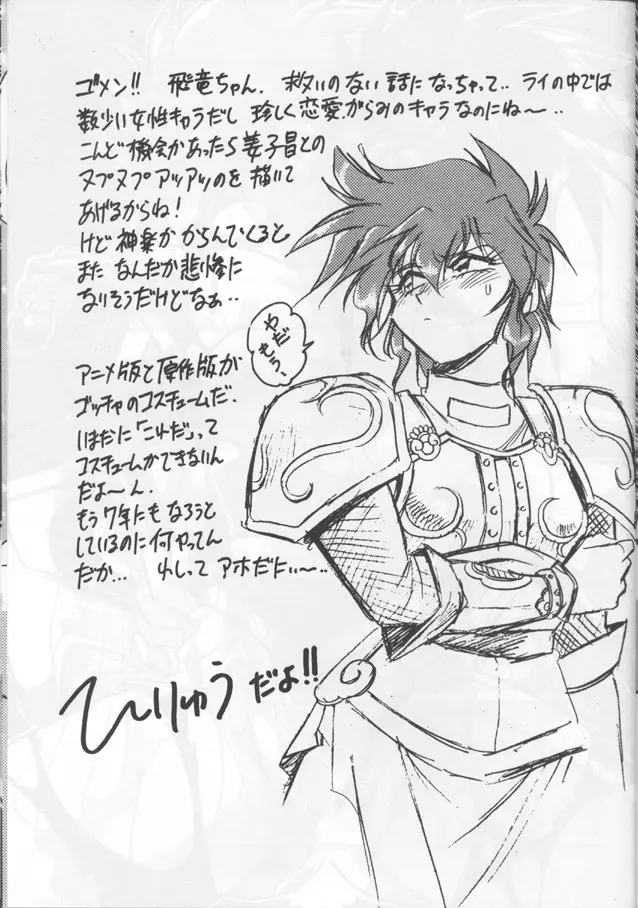 ゴメン!! 飛竜ちゃん. 救いのない話になっちゃって.. ライの中では
数少い女性キャラだし 珍しく恋愛がらみのキャラなのにね〜..
こんど機会があったら姜子昌との
ヌプヌプ アツアツのを 描いて
あげるからね!
けど神楽が からんでくると
また なんだか悲惨に
なりそうだけどなぁ..
やだ
もう.
アニメ版と原作版が
ゴッチャのコスチュームだ.
いまだに「これだ」って
コスチュームができないん
だよ〜ん.
もう7年にもなろうと
しているのに何やってん
だか... 少しって アホだに〜..
ひりゅう だよ!!